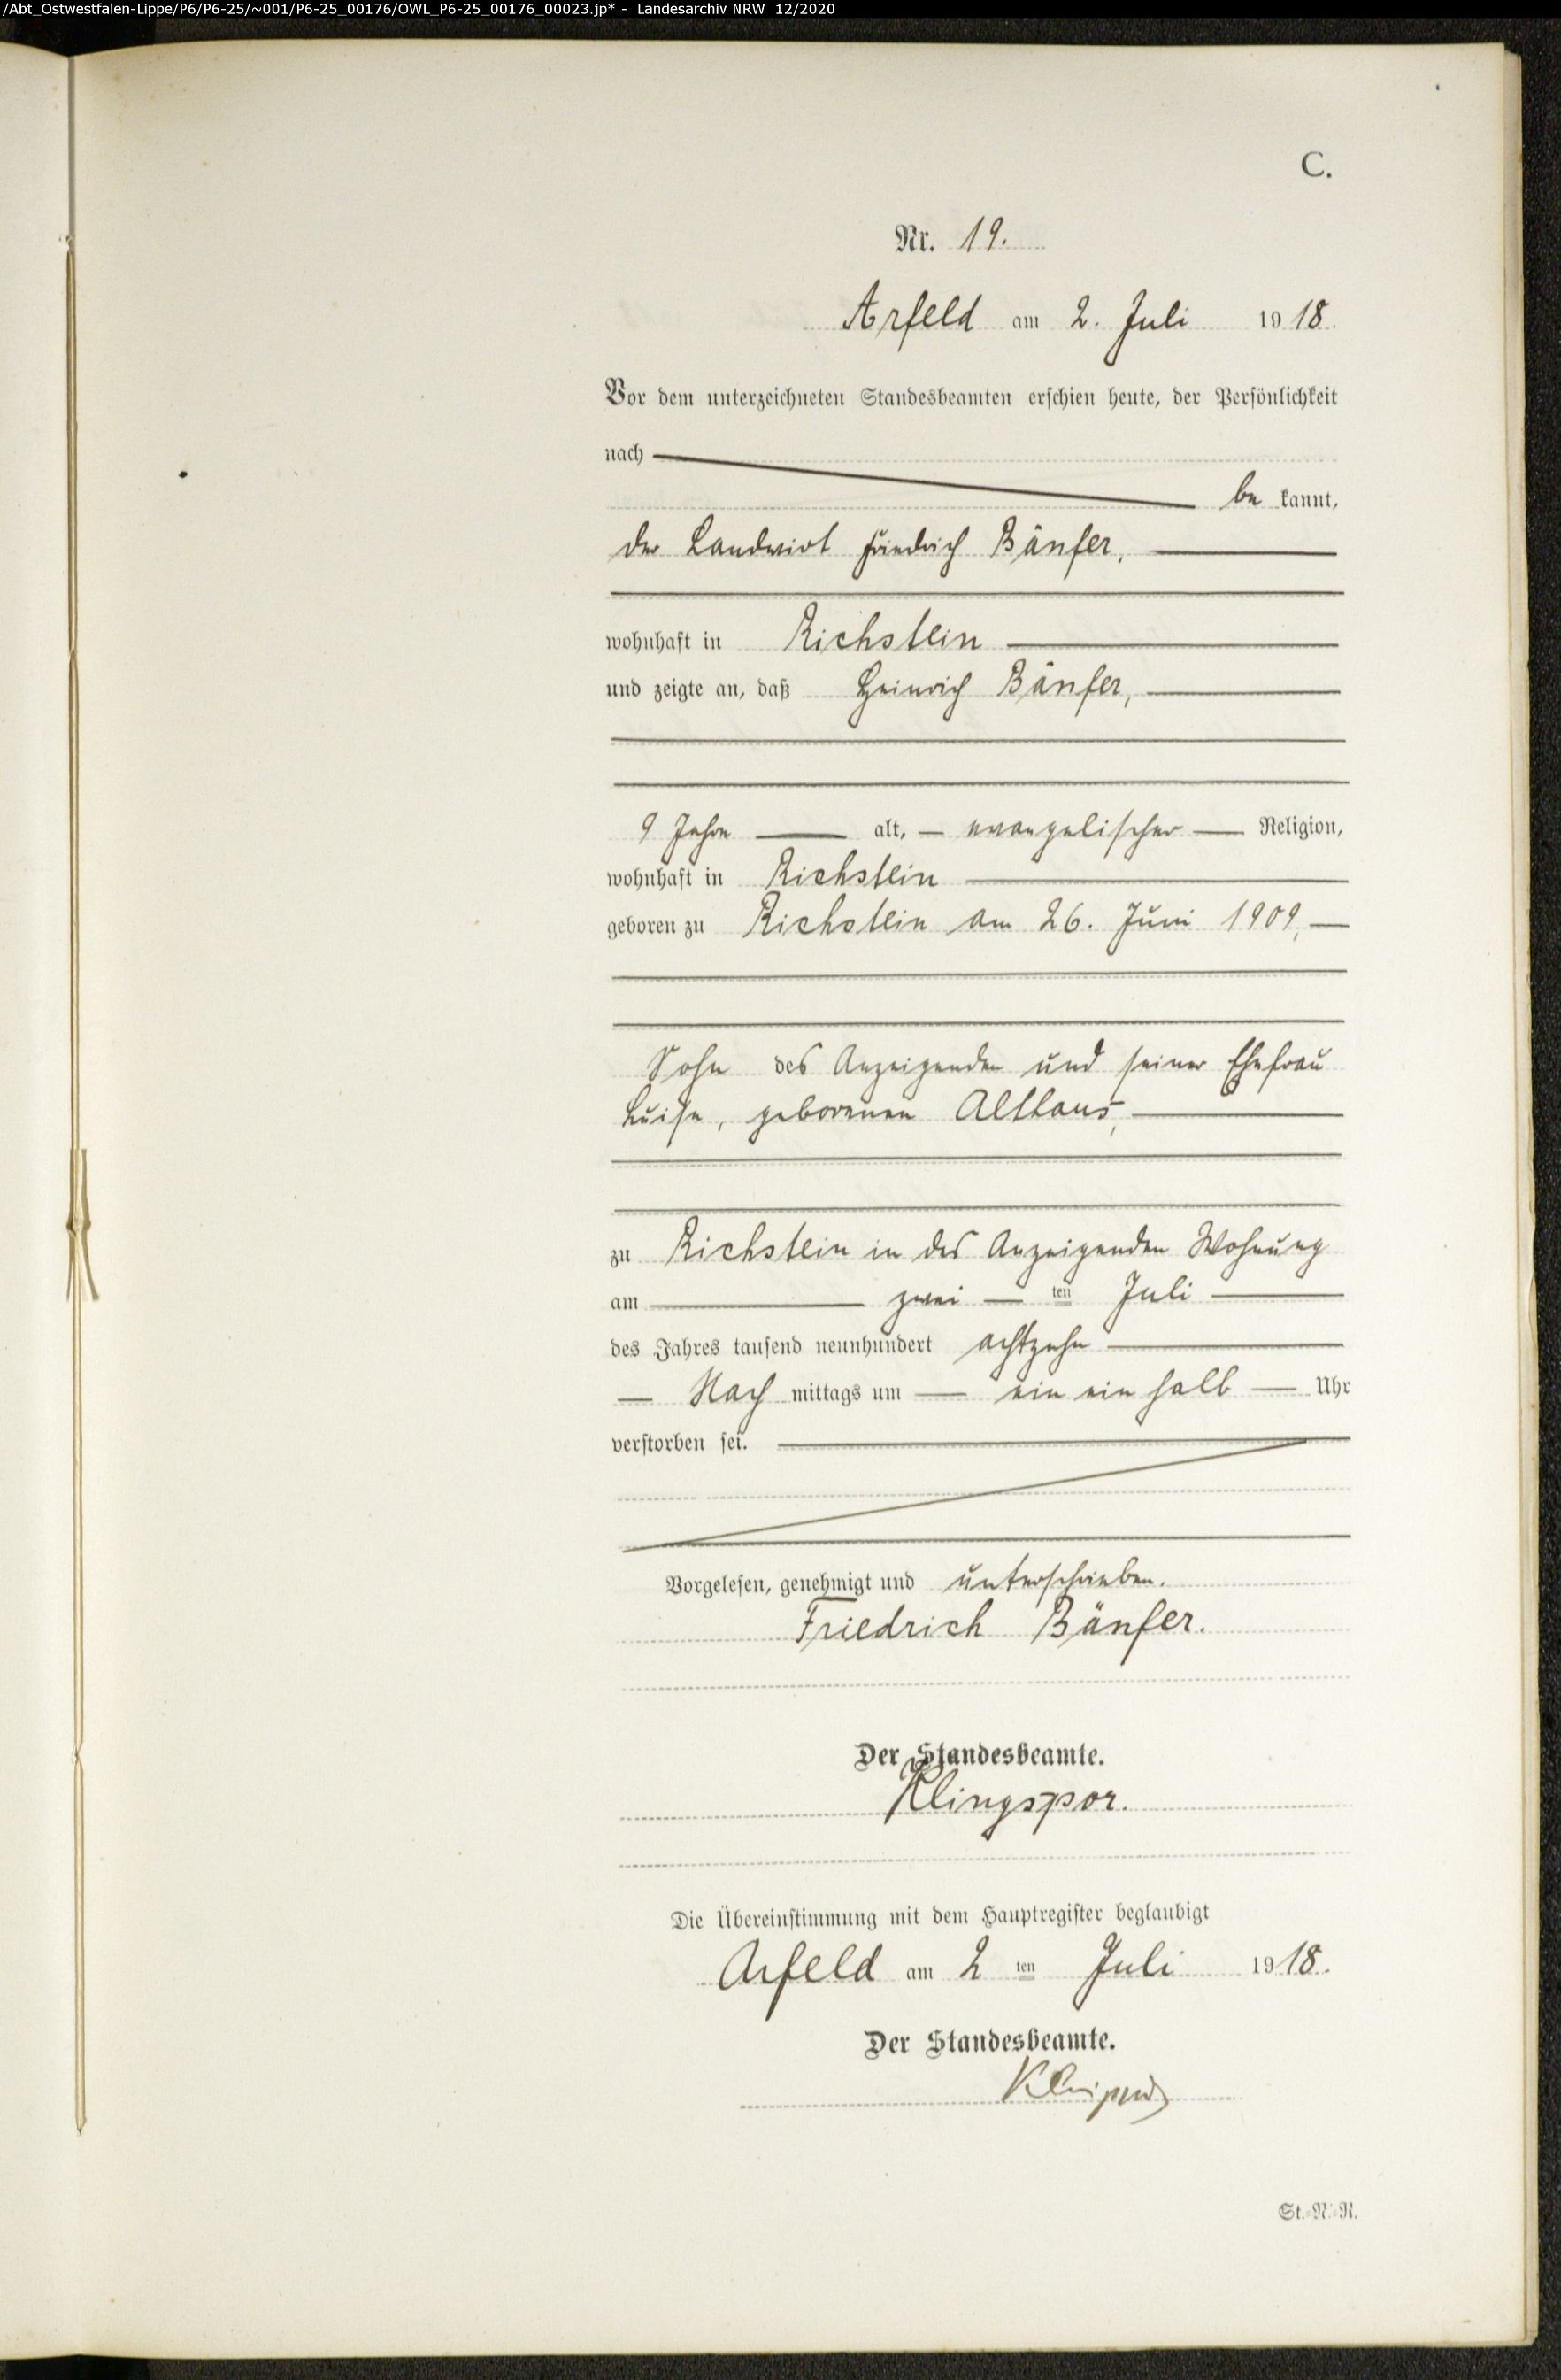 /Abt_Ostwestfalen-Lippe/P6/P6-25/~001/P6-25_00176/OWL_P6-25_00176_00023.jp* - Landesarchiv NRW 12/2020
C.
Nr. 19.
Arfeld am 2. Juli 1918.
Vor dem unterzeichneten Standesbeamten erschien heute, der Persönlichkeit
nach
be kannt,
der Landwirt Friedrich Bänfer,
wohnhaft in Richstein
und zeigte an, daß Heinrich Bänfer,
9 Jahre alt, evangelischer Religion,
wohnhaft in Richstein
geboren zu Richstein am 26. Juni 1909,
Sohn des Anzeigenden und seiner Ehefrau
Luise, geborenen Althaus,
zu Richstein in des Anzeigenden Wohnung
am zwei ten Juli
des Jahres tausend neunhundert achtzehn
Nach mittags um ein ein halb Uhr
verstorben sei.
Vorgelesen, genehmigt und unterschrieben.
Friedrich Bänfer.
Der Standesbeamte.
Klingspor.
Die Übereinstimmung mit dem Hauptregister beglaubigt
Arfeld am 2 ten Juli 1918.
Der Standesbeamte.
Klingspor
St.-N.-R.